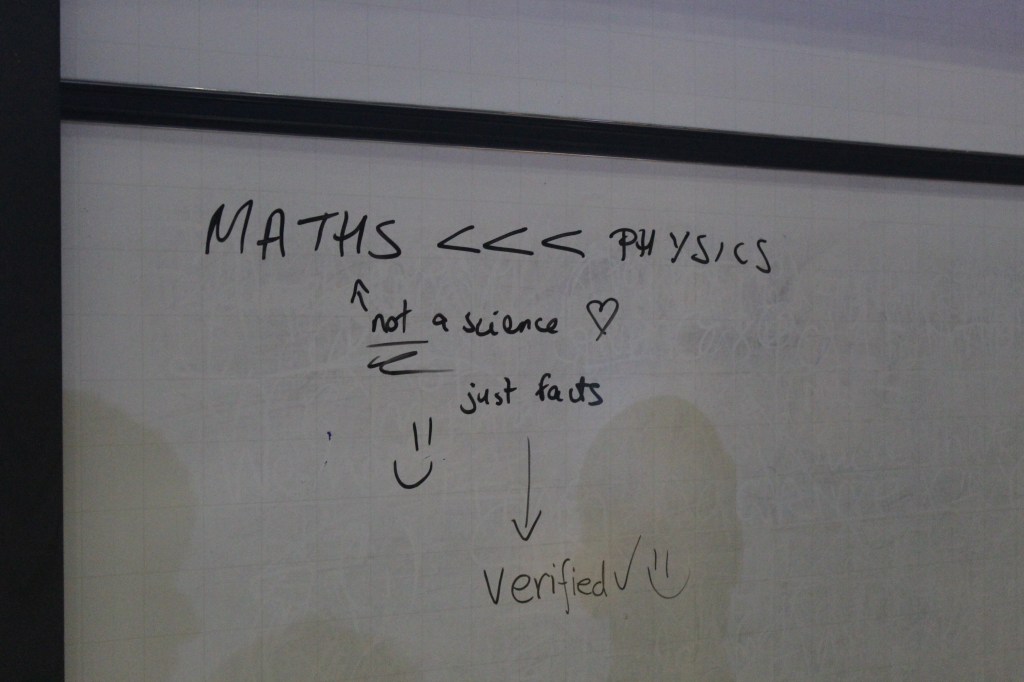 MATHS <<< PHYSICS
↑ not a science ♡
just facts
↓
verified ✓